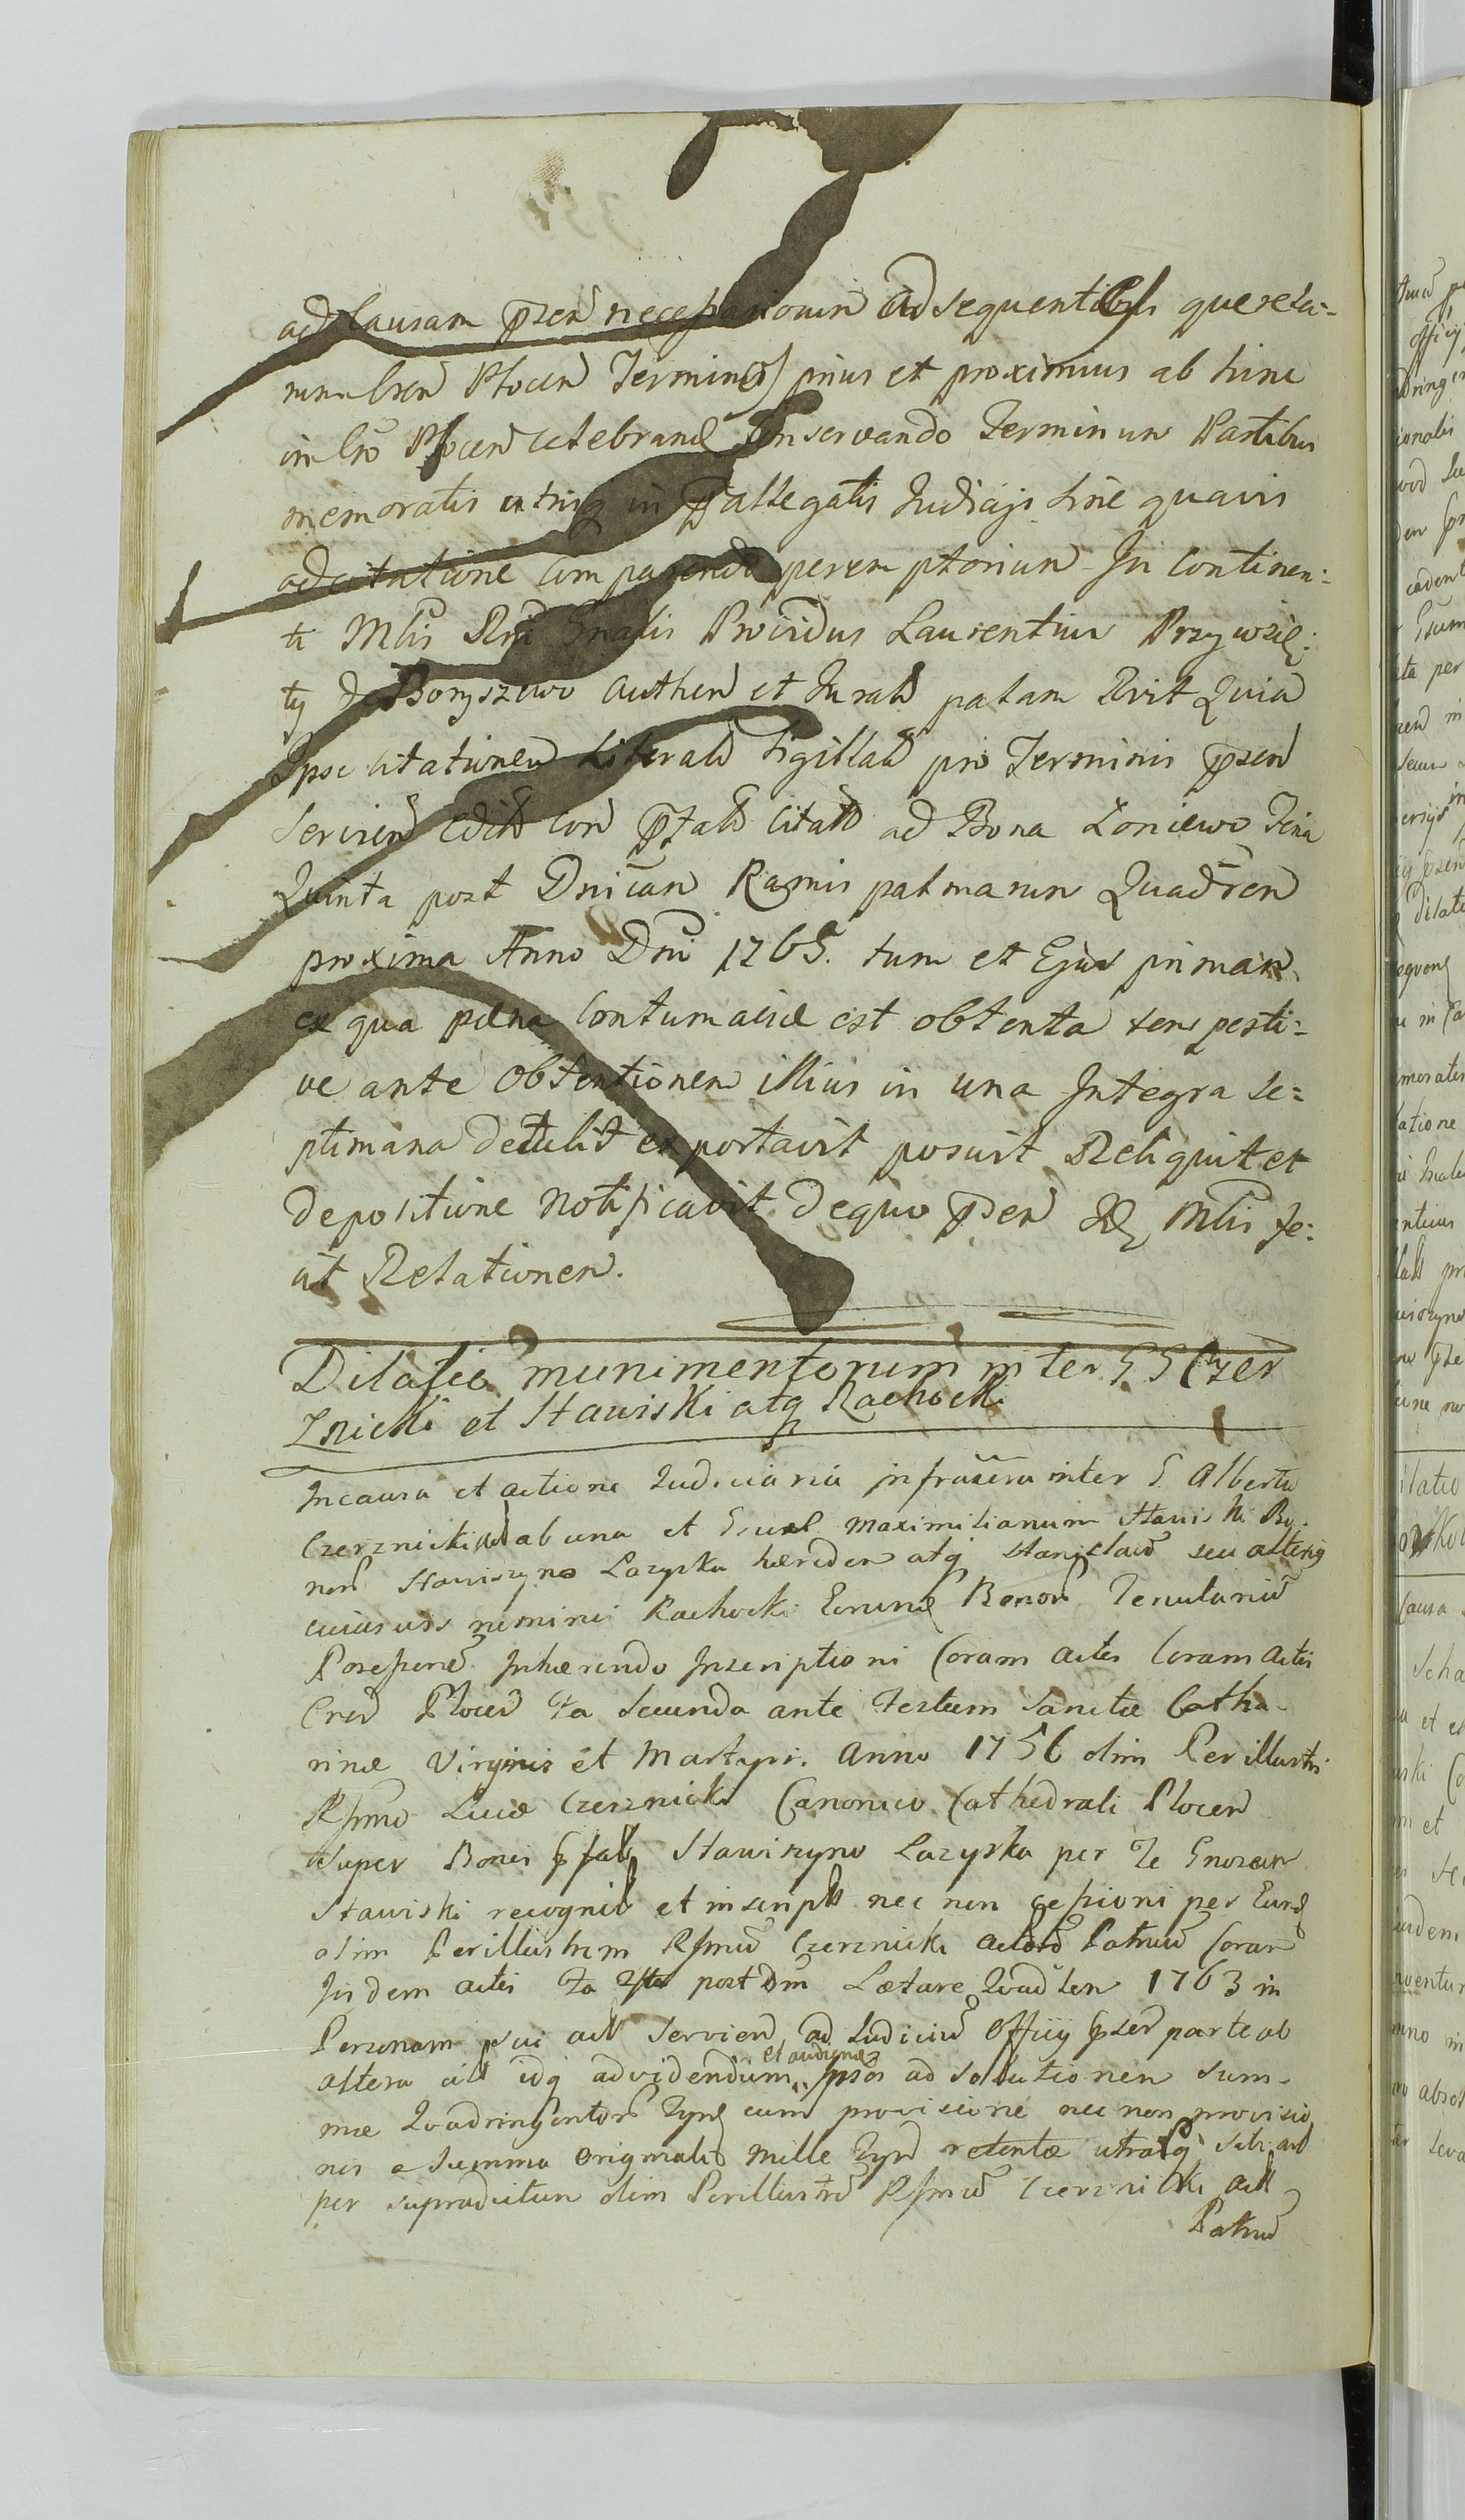 ad Causam pñseñ necessariorum ad sequentes querela-
rum Creñ Plocen Terminos prius et proximius ab hinc
in Cro Plocen celebrand Conservando Terminum Partibus
memoratis utrisq in pallegatis Judicijs sine quavis
adcitatione Comparendi peremptorium In Continen:
ti Mlis Rni Gnalis Providus Laurentius Przywile:
ty de Boryszewo Authen et Jurat palam Rvit Quia
Ipse Citationem Literal Sigillat pro Terminis pñsen
Servien Edit Cor pfat Citatt ad Bona Zoniewo Feria
Quinta post Dnicam Ramis palmarum Quadren
proxima Anno Dni 1765. tum et Ejus primam
ex qua pœna Contumaciæ est obtenta tempesti=
ve ante Obtentionem illius in una Integra Se=
ptimana detulit exportavit posuit Reliquit et
depositione notificavit de quo pñsen Mlis fe:
cit Relationem.
Dilatio munimentorum inter G G Czer
znicki et Stawiski atq Rachocki
In causa et actione Judiciaria infrascra inter G. Albertu
Czerznicki ab una et Gnul Maximilianum Stawiski Bo-
nor Stawiszyno Lazyska hæredem atq Stanislaum seu alterig
cuiusvis nominis Rachocki Eorund Bonor Tenutariu
Possessore Inhærendo Inscriptioni Coram actis Coram Actis
Cren Plocen fa Secunda ante Festum Sanctæ Catha-
rinæ Virginis et Martyris. Anno 1756 olim Perillustri
Rssmo Luca Czerznicki Canonico Cathedrali Plocen
Super Bonis pfat Stawiszyno Lazyska per Te Gnosum
Stawiski recognit et inscript nec non cessioni per Eund
olim Perillustrem Rssmu Czerznicki actoru Patruu Coram
Iisdem actis fa 2da post Dm Lætare Quadlen 1763 in
Personam sui act Servien ad Judiciu Officij pñsen parte ab
altera citt idq ad videndum et audiend Ipsos ad solutionem Sum-
mæ Quadringentor Zynd cum provisione nec non provisio
nis a Summa Originali Mille Zynd retentæ utrasq Sibi act
per supradictum olim Perillustre Rssmu Czerznicki act
Patruu